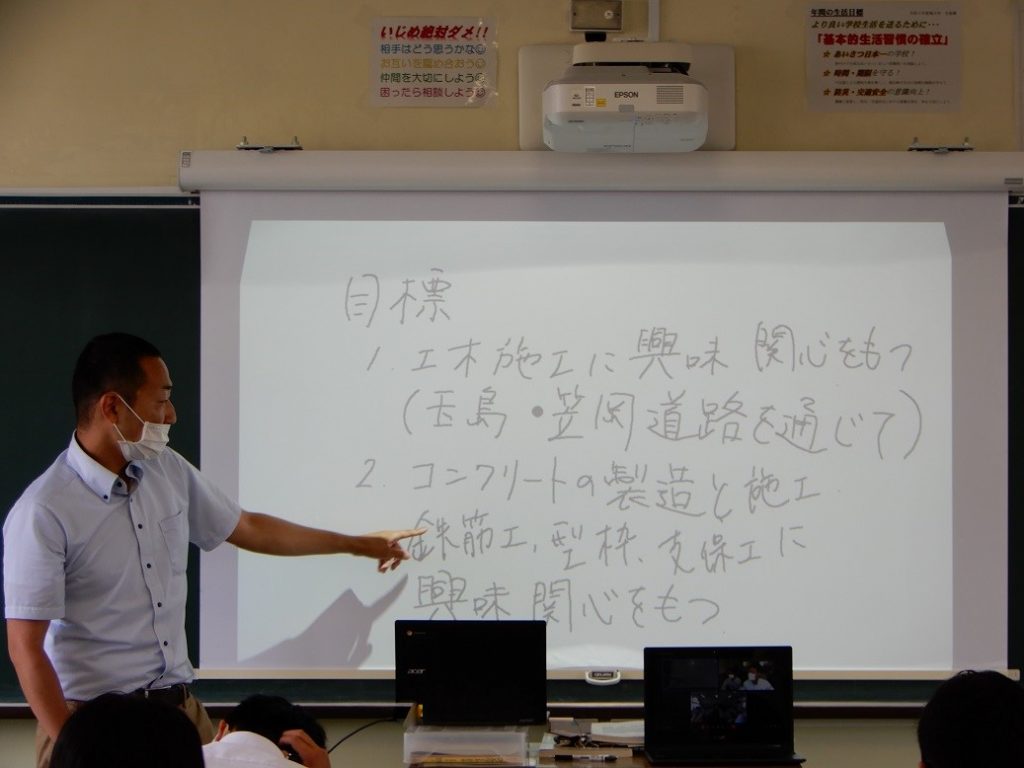 いじめ絶対ダメ!!
相手はどう思うかな
お互いを認め合おう
仲間を大切にしよう
困ったら相談しよう
年間の生活目標
より良い学校生活を送るために・・・
「基本的生活習慣の確立」
★ あいさつ日本一の学校!
★ 時間・期限を守る!
★ 防災・交通安全の意識向上!
EPSON
目標
1. 土木施工に興味関心をもつ
(玉島・笠岡道路を通じて)
2. コンクリートの製造と施工
鉄筋工、型枠、支保工に
興味関心をもつ
acer